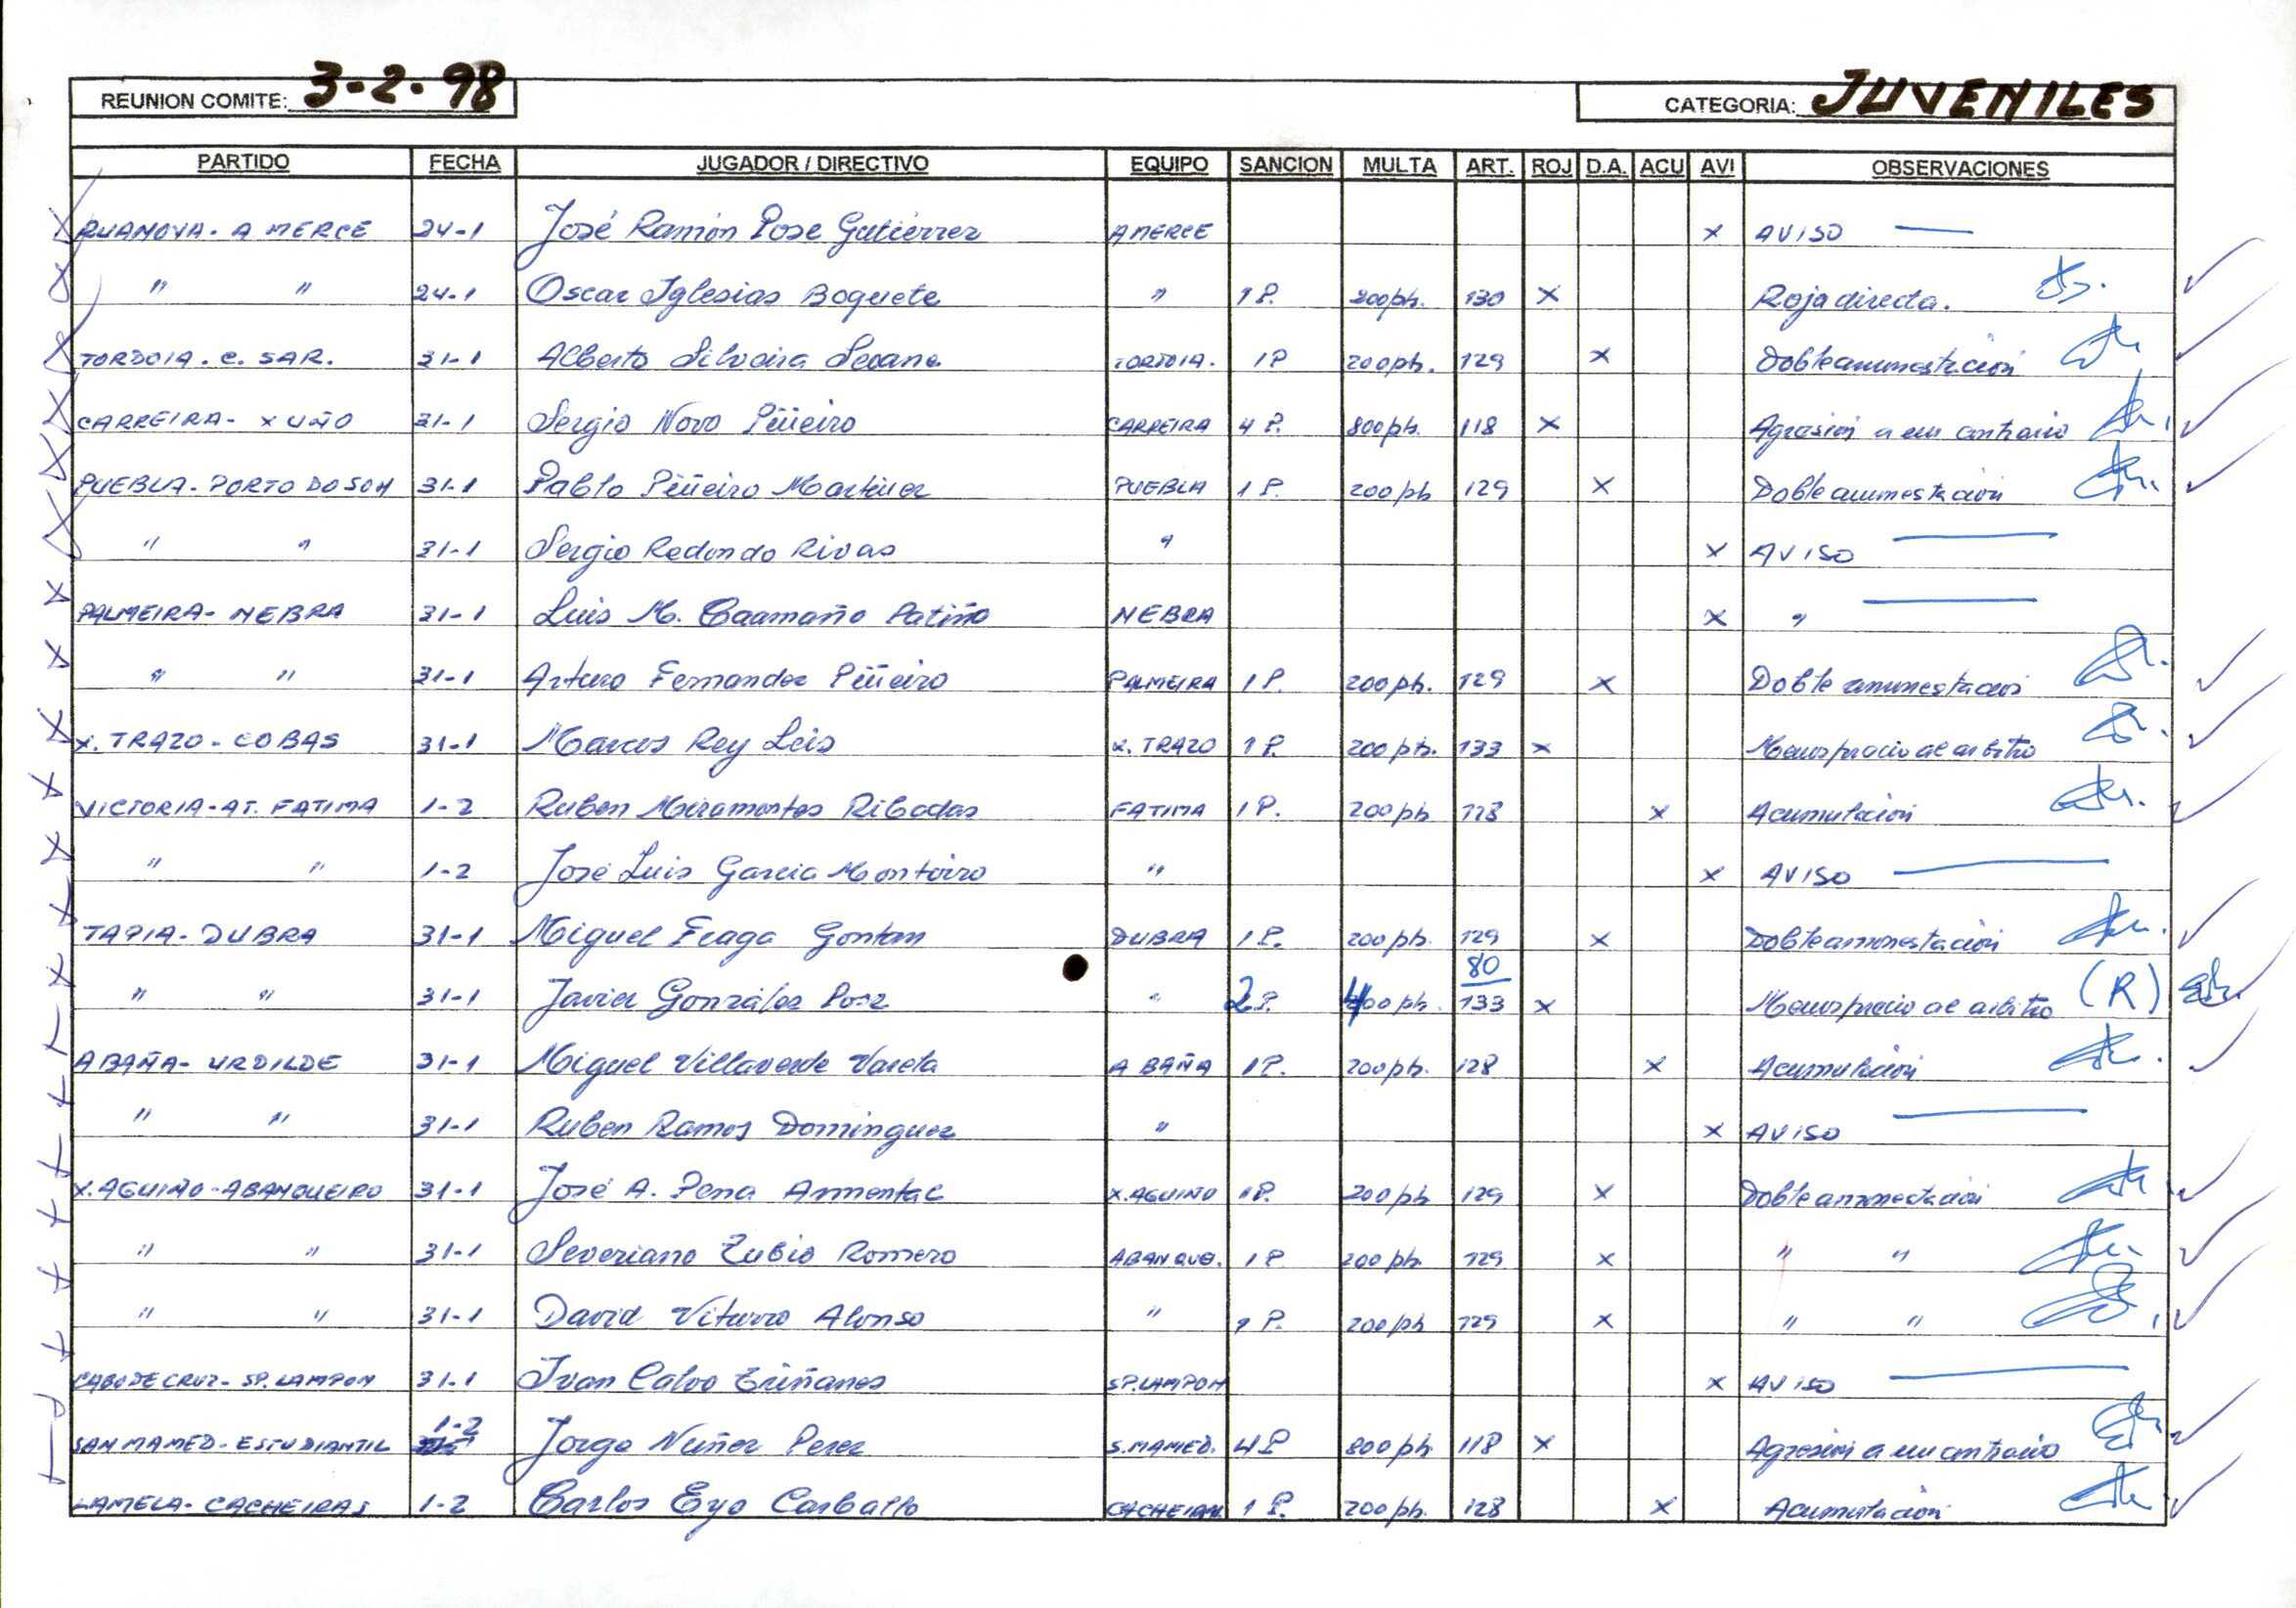 REUNION COMITE: 3-2-98 CATEGORIA: JUVENILES
PARTIDO FECHA JUGADOR / DIRECTIVO EQUIPO SANCION MULTA ART. ROJ D.A. ACU AVI OBSERVACIONES
RUANOVA - A MERCE 24-1 José Ramón Pose Gutiérrez A MERCE x AVISO
" " 24-1 Oscar Iglesias Boquete " 1 P. 200 pts. 130 x Roja directa.
TORDOIA - C. SAR. 31-1 Alberto Silveira Seoane TORDOIA. 1 P 200 pts. 129 x Doble amonestación
CARREIRA - XUÑO 31-1 Sergio Novo Piñeiro CARREIRA 4 P. 800 pts. 118 x Agresión a un contrario
PUEBLA - PORTO DO SON 31-1 Pablo Piñeiro Martinez PUEBLA 1 P. 200 pts 129 x Doble amonestación
" " 31-1 Sergio Redondo Rivas " x AVISO
PALMEIRA - NEBRA 31-1 Luis M. Caamaño Patiño NEBRA x "
" " 31-1 Arturo Fernandez Piñeiro PALMEIRA 1 P. 200 pts. 129 x Doble amonestación
X. TRAZO - COBAS 31-1 Marcos Rey Leis X. TRAZO 1 P. 200 pts. 133 x Menosprecio al arbitro
VICTORIA - AT. FATIMA 1-2 Ruben Miramontes Ribadas FATIMA 1 P. 200 pts 128 x Acumulación
" " 1-2 José Luis Garcia Monteiro " x AVISO
TAPIA - DUBRA 31-1 Miguel Fraga Gontan DUBRA 1 P. 200 pts. 129 x Doble amonestación
80
" " 31-1 Javier González Pose " 2 P. 400 pts. 133 x Menosprecio al arbitro (R)
A BAÑA - URDILDE 31-1 Miguel Villaverde Varela A BAÑA 1 P. 200 pts. 128 x Acumulación
" " 31-1 Ruben Ramos Dominguez " x AVISO
X. AGUIÑO - ABANQUEIRO 31-1 José A. Pena Armental X. AGUIÑO 1 P. 200 pts 129 x Doble amonestación
" " 31-1 Severiano Rubio Romero ABANQUE. 1 P 200 pts. 129 x " "
" " 31-1 David Viturro Alonso " 1 P. 200 pts 129 x " "
CABO DE CRUZ - SP. LAMPON 31-1 Ivan Calvo Triñanes SP. LAMPON x AVISO
1-2
SAN MAMED - ESTUDIANTIL Jorge Nuñez Perez S. MAMED. 4 P 800 pts 118 x Agresión a un contrario
LAMELA - CACHEIRAS 1-2 Carlos Eyo Carballo 1 P. 200 pts. 128 x Acumulación